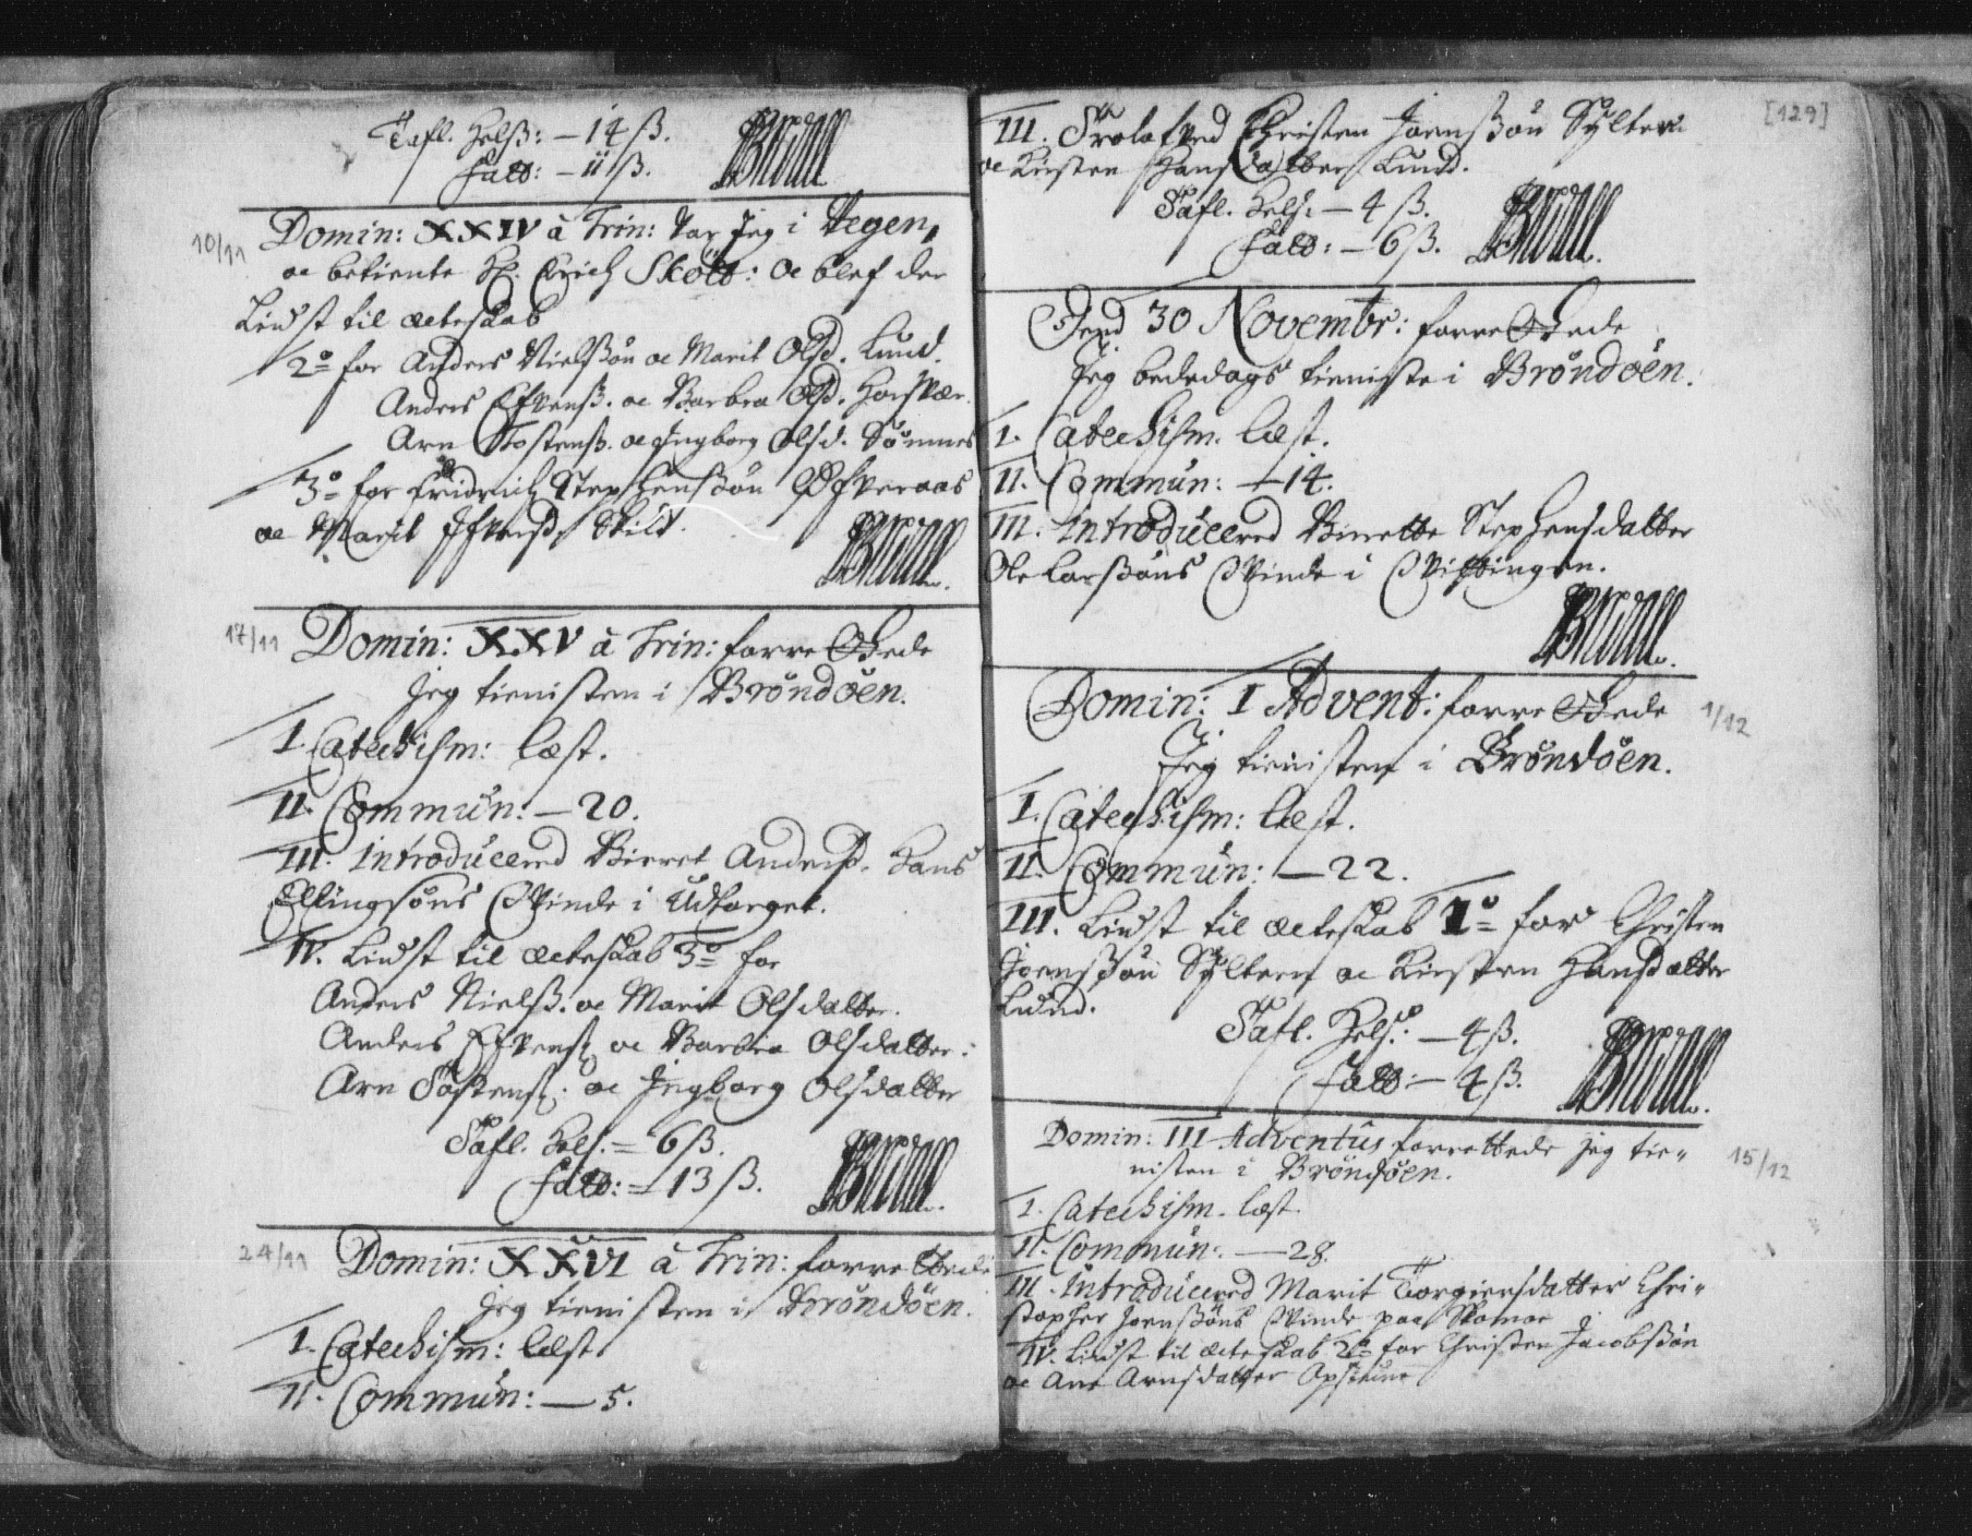 Tafl. Helß: – 14 ß.
Fatt: – 11 ß.
10/11
Domin: XXIV à Trin: Var Jeg i Vegen,
oc betiente Hr. Erich Skött: Oc blef der
Liust til ecteskab
2º for Anders Nielßøn oc Marit Olsd. Lund.
Anders Efvenß. oc Barbra Olsd.
Arn Tostenß. oc Ingborg Olsd. Sømnes
3º for Fridrich Stephenßøn
oc Marit Skild.
17/11
Domin: XXV à Trin: forrettede
Jeg tienisten i Brøndøen.
I. Catechism: læst.
II. Commun: – 20.
III. Introducered Birret Andersd. Hans
Ellingsøns Qvinde i Udtorget.
IV. Liust til ecteskab 3º for
Anders Nielß. oc Marit Olsdatter.
Anders Efvens. oc Barbra Olsdatter.
Arn Tostens. oc Ingborg Olsdatter
Tafl. Hels. = 6 ß.
Fatt: = 13 ß.
24/11
Domin: XXVI à Trin: forrettede
Jeg tienisten i Brøndøen.
I. Catechism: læst
II. Commun: – 5.
[129]
III. Trolofved Christen Joenßøn Sylter
oc Kirsten Hansdatter Lund.
Tafl. Hels: – 4 ß.
Fatt: – 6 ß.
30 Novembr: forrettede
Jeg bededags tieniste i Brøndøen.
I. Catechism. læst.
II. Commun: – 14.
III. Introducered Birrette Stephensdatter
Ole Larßøns Qvinde i
1/12
Domin: I Advent: forrettede
Jeg tienisten i Brøndøen.
I. Catechism: læst.
II. Commun: – 22.
III. Liust til ecteskab 1º for Christen
Joenßøn Sylteren oc Kirsten Hansdatter
Lund.
Tafl. Hels: – 4 ß.
Fatt: – 4 ß.
15/12
Domin: III Adventus forrettede jeg tie-
nisten i Brøndøen.
I. Catechism. læst.
II. Commun: – 28.
III. Introducered Marit Torgiersdatter Chri-
stopher Joenßøns Qvinde paa
IV. Liust til ecteskab 2º for Christen Jacobßøn
oc Ane Arnsdatter